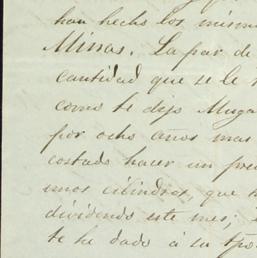 han hecho los mismo
Minas. La par de
cantidad que se le
como te dejo Muga
por ocho años mas
costado hacer un pre
unos cilindros, que
dividendo este mes;
te he dado á su tpo